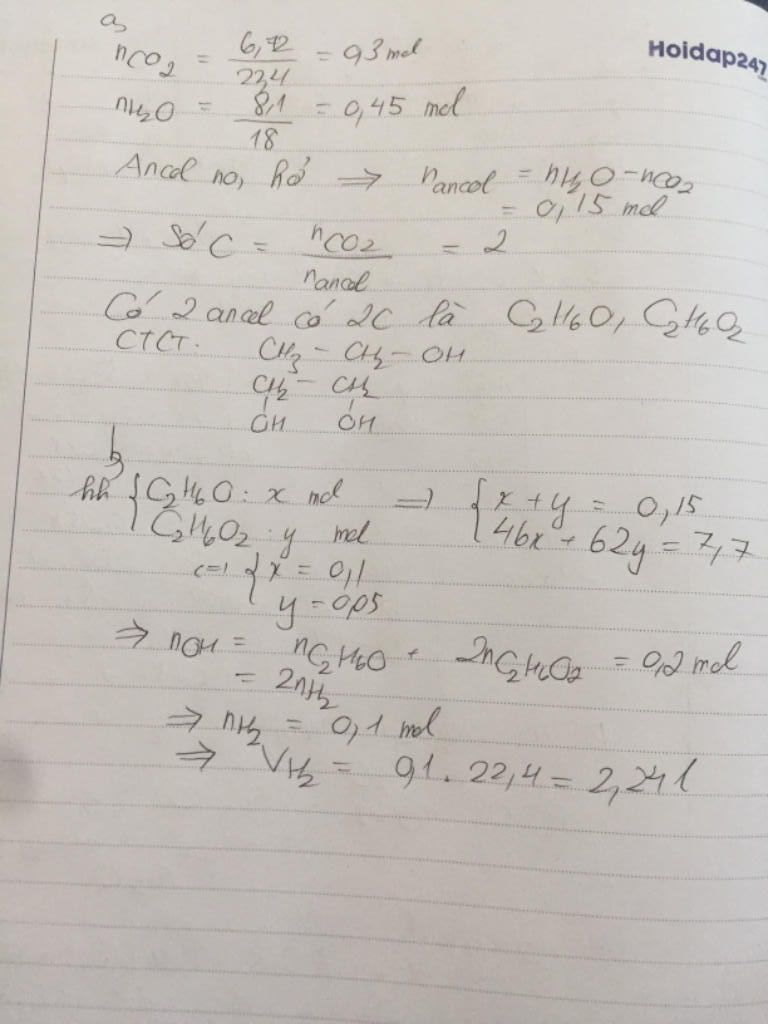 a,
Hoidap247
nCO2 = 6,72/22,4 = 0,3 mol
nH2O = 8,1/18 = 0,45 mol
Ancol no, hở => nancol = nH2O - nCO2
= 0,15 mol
=> Số C = nCO2/nancol = 2
Có 2 ancol có 2C là C2H6O, C2H6O2
CTCT: CH3 - CH2 - OH
CH2 - CH2
OH OH
b,
hh { C2H6O : x mol => { x + y = 0,15
C2H6O2 : y mol 46x + 62y = 7,7
<=> { x = 0,1
y = 0,05
=> nOH = nC2H6O + 2nC2H6O2 = 0,2 mol
= 2nH2
=> nH2 = 0,1 mol
=> VH2 = 0,1 . 22,4 = 2,24 l